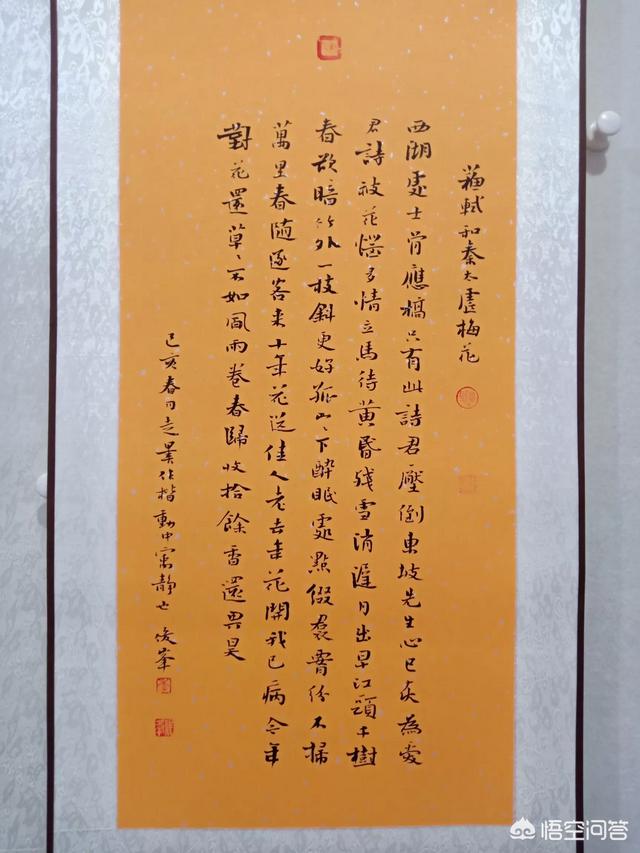 蘓軾和秦太虛梅花
西湖處士骨應槁只有此詩君壓倒東坡先生心已灰為愛
君詩被花惱多情立馬待黃昏殘雪消遲月出早江頭千樹
春欲暗竹外一枝斜更好孤山〻下醉眠處點綴裠腰紛不掃
萬里春隨逐客來十年花送佳人老去年花開我已病今年
對花還草〻不如風雨卷春歸收拾餘香還畀昊
己亥春月走墨作楷動中寓靜也 俊峯
悟空问答